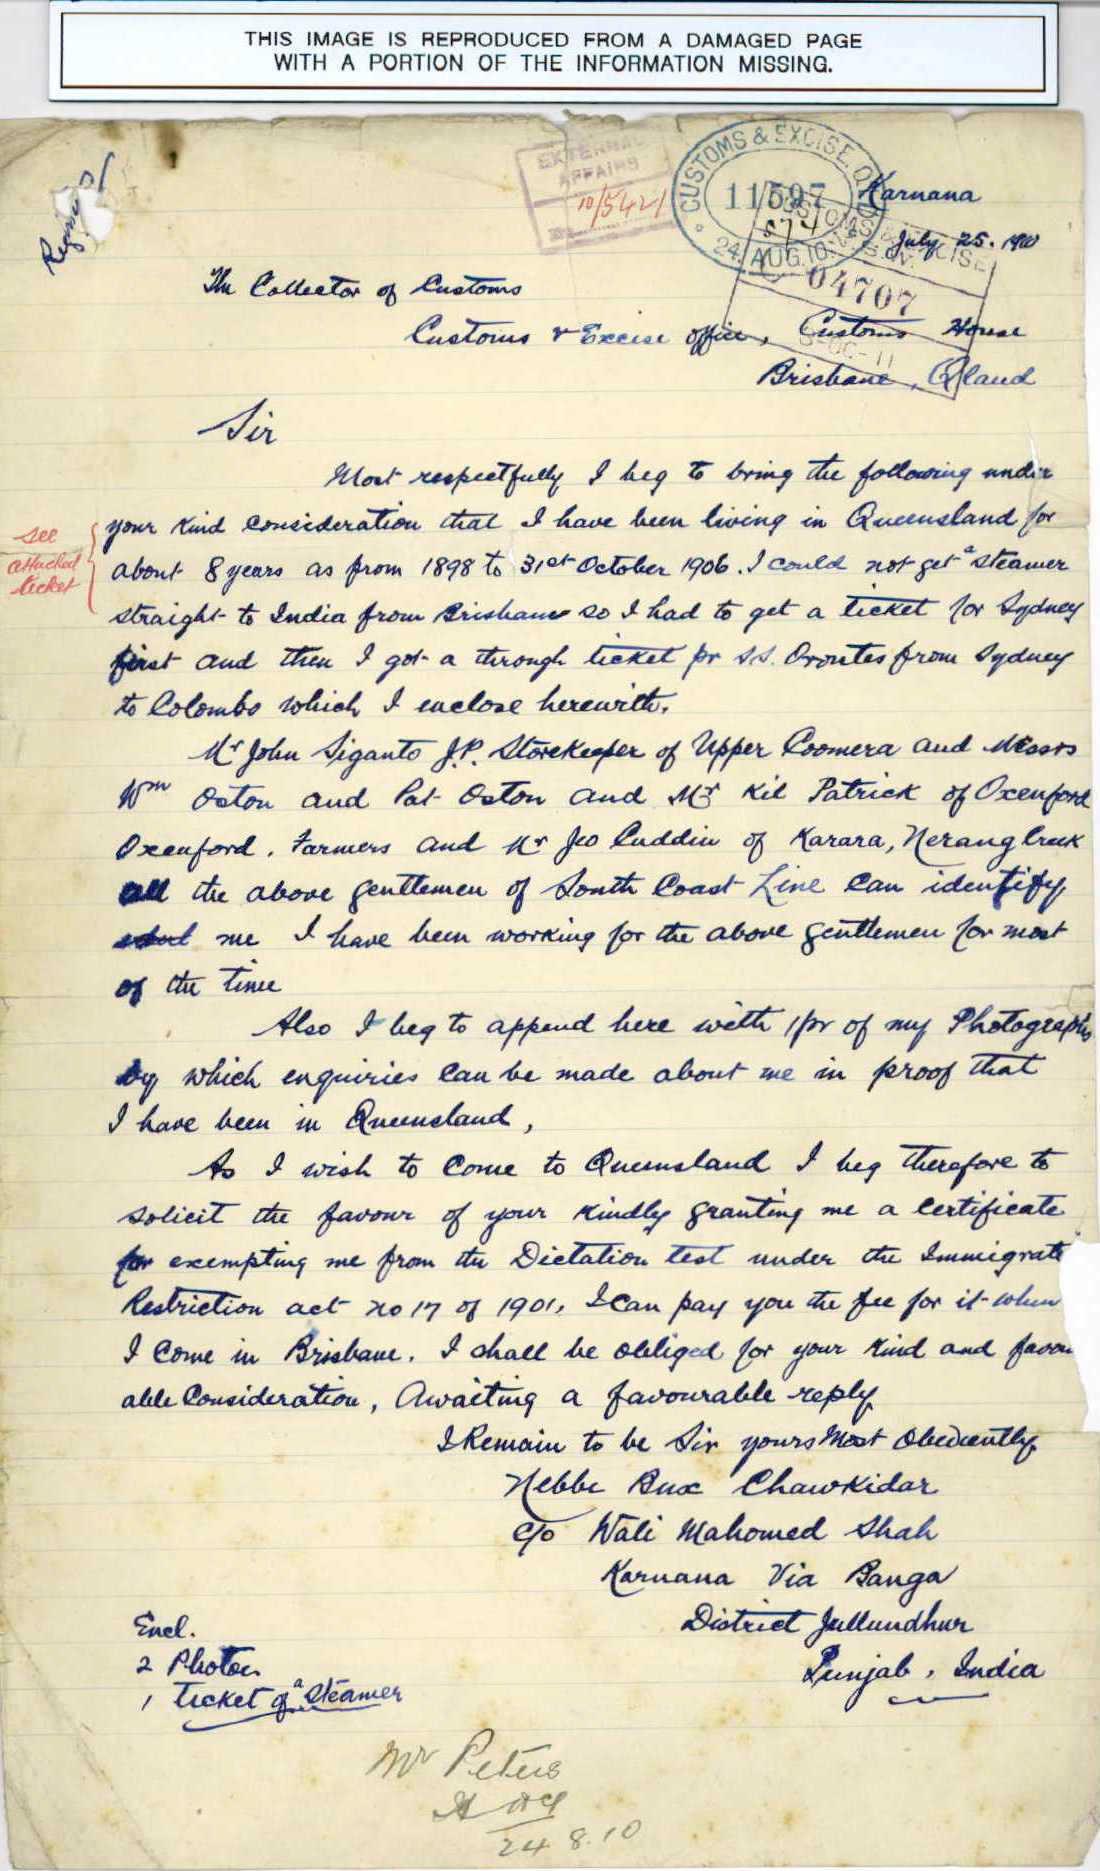 THIS IMAGE IS REPRODUCED FROM A DAMAGED PAGE
WITH A PORTION OF THE INFORMATION MISSING.
EXTERNAL
AFFAIRS
10/5421
CUSTOMS & EXCISE, Q
11597
24 AUG. 10
04707
Karnana
July 25. 1910
The Collector of Customs
Customs & Excise office, Customs House
Brisbane, Qland
Sir
Most respectfully I beg to bring the following under
your kind consideration that I have been living in Queensland for
see
attached
ticket
about 8 years as from 1898 to 31st October 1906. I could not get a steamer
straight to India from Brisbane so I had to get a ticket for Sydney
first and then I got a through ticket pr S.S. Orontes from Sydney
to Colombo which I enclose herewith.
Mr John Siganto J.P. Storekeeper of Upper Coomera and Messrs
Wm Oxton and Pat Oxton and Mr Kil Patrick of Oxenford
Oxenford. Farmers and Mr Geo Cuddin of Karara, Nerang Creek
all the above gentlemen of South Coast Line can identify
me I have been working for the above gentlemen for most
of the time
Also I beg to append here with 1 pr of my Photographs
by which enquiries can be made about me in proof that
I have been in Queensland,
As I wish to come to Queensland I beg therefore to
solicit the favour of your kindly granting me a certificate
for exempting me from the Dictation test under the Immigrati
Restriction act no 17 of 1901, I can pay you the fee for it when
I come in Brisbane. I shall be obliged for your kind and favou
able Consideration, Awaiting a favourable reply
I Remain to be Sir yours Most Obediently
Nebbe Bux Chawkidar
c/o Wali Mahomed Shah
Karnana Via Banga
District Jullundhur
Punjab, India
Encl.
2 Photos
1 ticket of a Steamer
Mr Peters
24 8.10